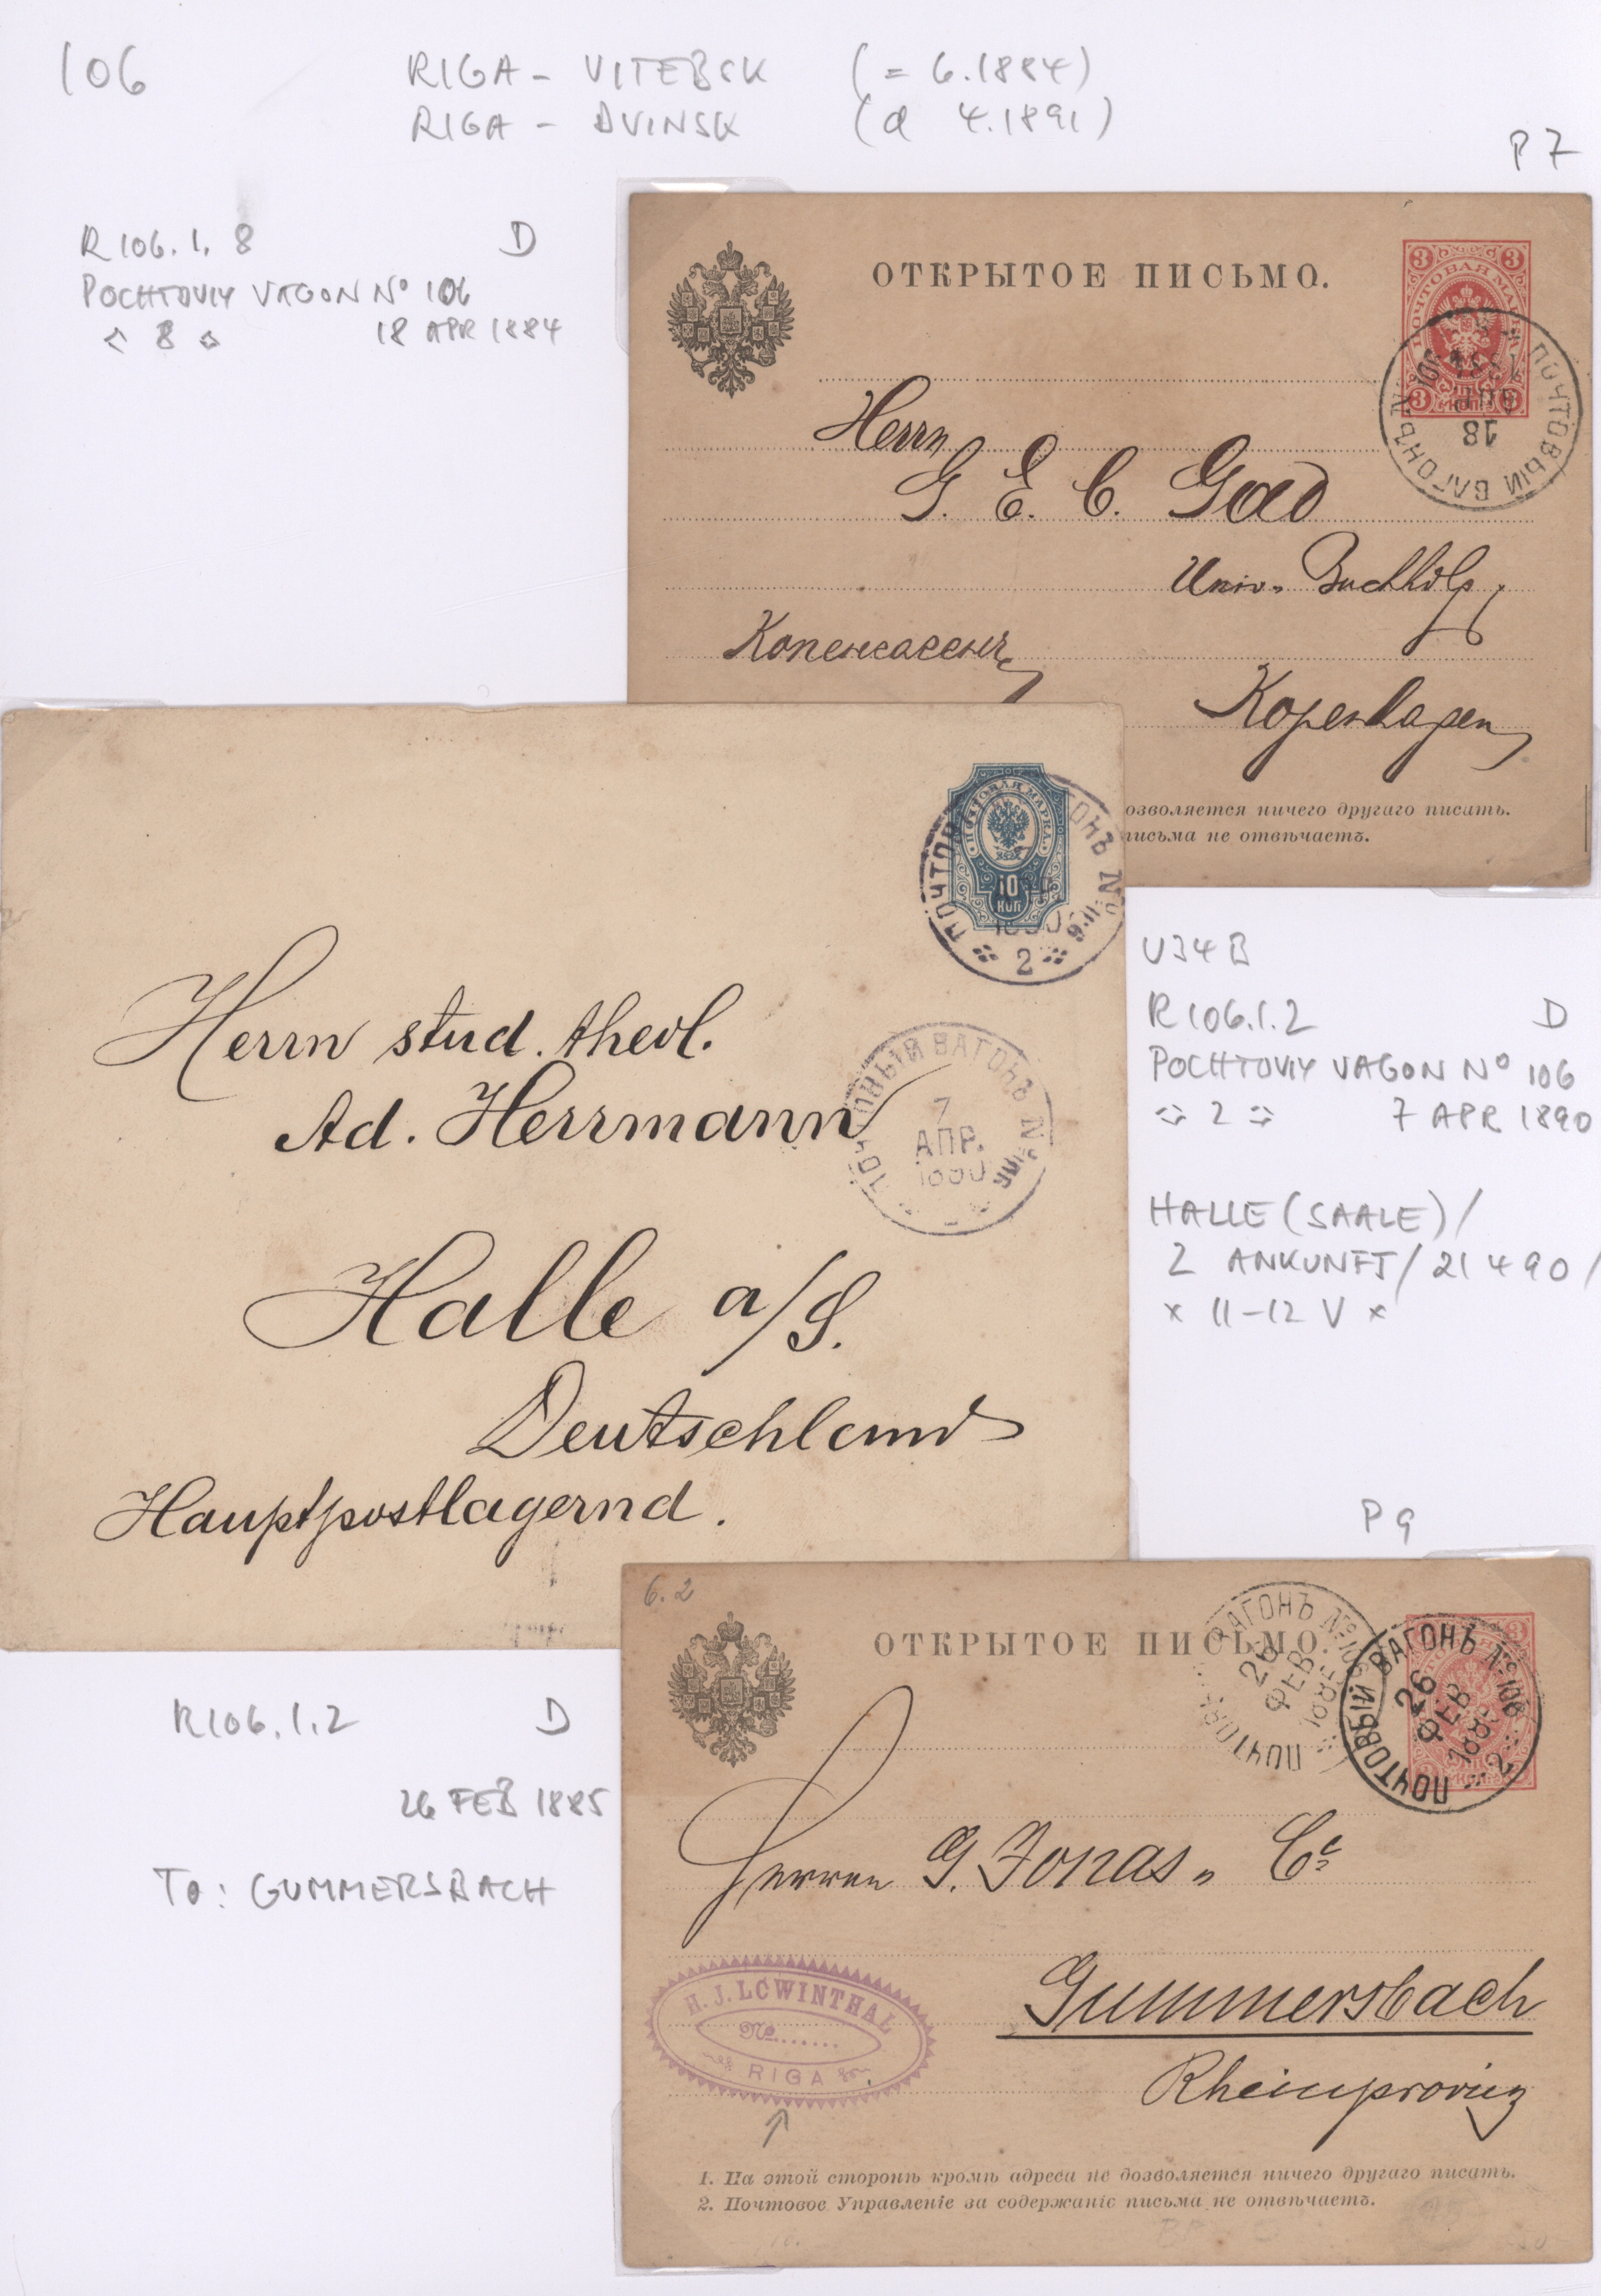 106
RIGA - VITEBSK (= 6.1884)
RIGA - DVINSK (d 4.1891)
P7
R106.1.8 D
POCHTOVIY VAGON No 106
8 18 APR 1884
ОТКРЫТОЕ ПИСЬМО.
3 3
ПОЧТОВАЯ МАРКА
3 3
ПОЧТОВЫЙ ВАГОНЪ № 106
18
АПР
1884
Herrn
G. E. C. Gad
Univ. Buchhdlg
Копенгагенъ
Kopenhagen
озволяется ничего другаго писать.
письма не отвѣчаетъ.
ПОЧТОВАЯ МАРКА
10
КОП
ПОЧТОВ ОНЪ №
1890
2
Herrn stud. theol.
Ad. Herrmann
Halle a/S.
Deutschland
Hauptpostlagernd.
ПОЧТОВЫЙ ВАГОНЪ №
7
АПР.
1890
U34B
R106.1.2 D
POCHTOVIY VAGON No 106
2 7 APR 1890
HALLE (SAALE) /
2 ANKUNFT / 21 4 90 /
* 11-12 V *
P9
R106.1.2 D
26 FEB 1885
TO: GUMMERSBACH
6.2
ОТКРЫТОЕ ПИСЬМО.
ПОЧТОВ ВАГОНЪ №106
26
ФЕВ
1885
ПОЧТОВЫЙ ВАГОНЪ №106
26
ФЕВ
1885
2
Herren G. Jonas & Co
Gummersbach
Rheinprovinz
H. J. LOWINTHAL
No.......
RIGA
1. На этой сторонѣ кромѣ адреса не дозволяется ничего другаго писать.
2. Почтовое Управленіе за содержаніе письма не отвѣчаетъ.